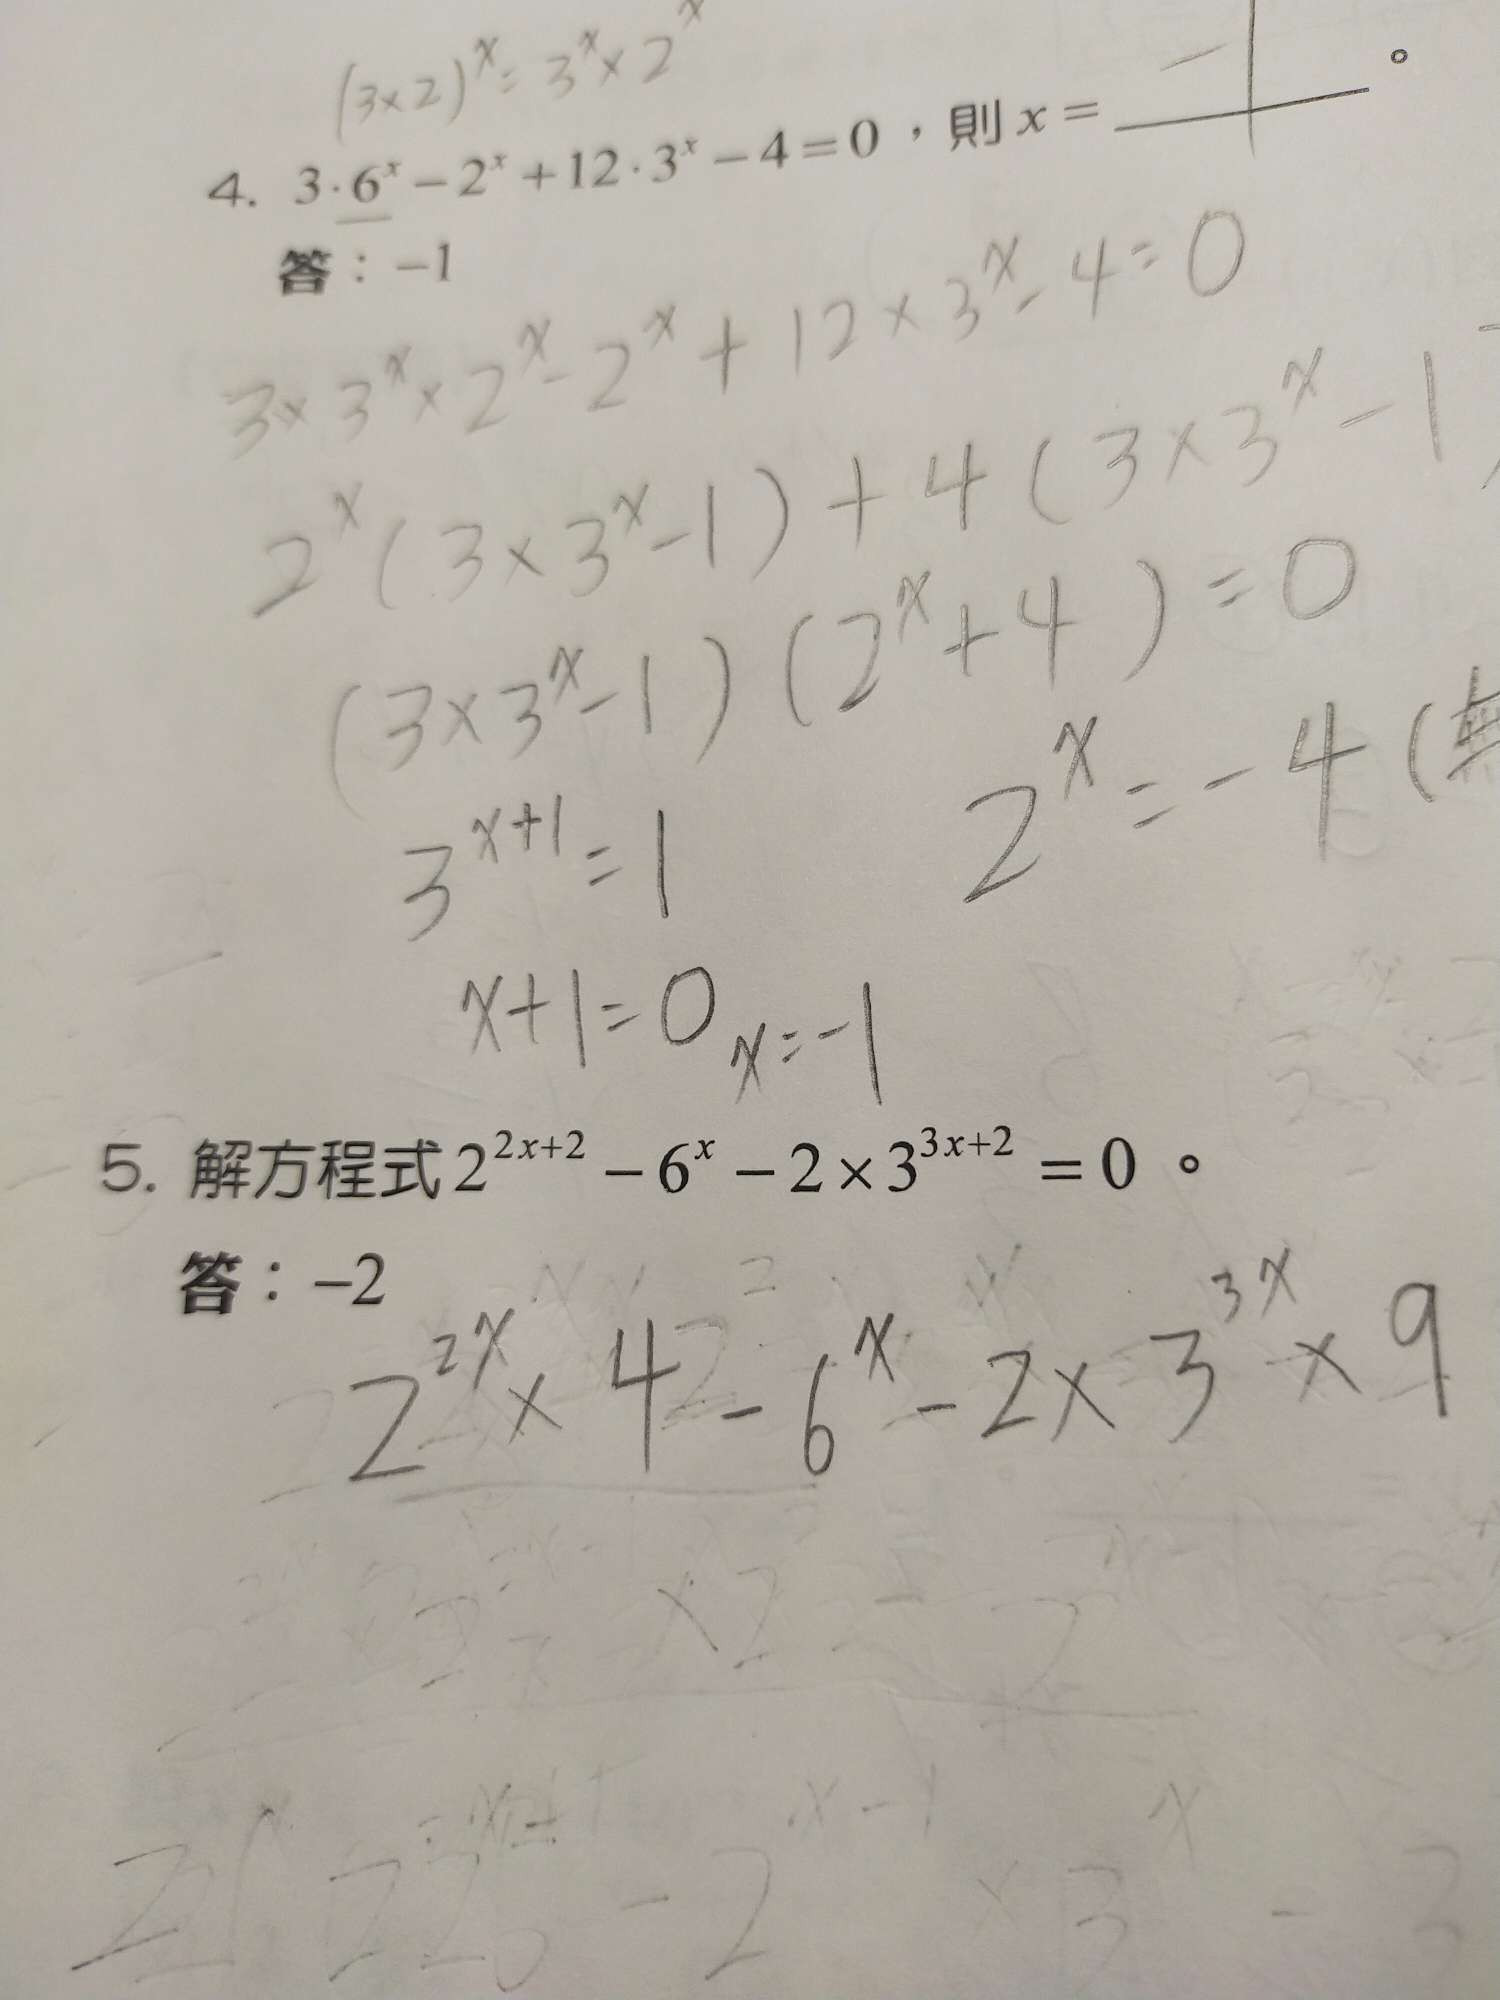 (3×2)^x = 3^x × 2^x
4. 3·6^x − 2^x + 12·3^x − 4 = 0，則 x = -1 。
答：−1
3×3^x×2^x - 2^x + 12×3^x - 4 = 0
2^x(3×3^x-1)+4(3×3^x-1)
(3×3^x-1)(2^x+4)=0
3^{x+1}=1 2^x=-4(
x+1=0 x=-1
5. 解方程式 2^{2x+2} − 6^x − 2×3^{3x+2} = 0。
答：−2
2^{2x}×4 - 6^x - 2×3^{3x}×9